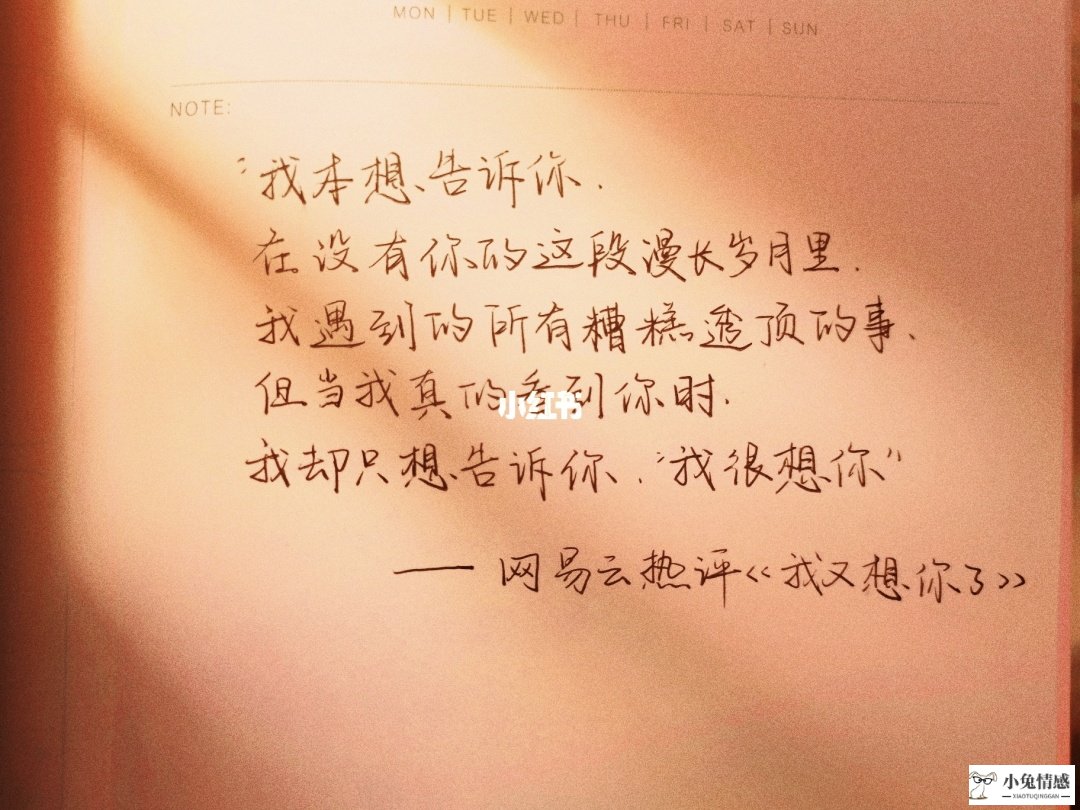 MON | TUE | WED | THU | FRI | SAT | SUN
NOTE:
“我本想告诉你.
在没有你的这段漫长岁月里.
我遇到的所有糟糕透顶的事、
但当我真的看到你时.
我却只想告诉你,“我很想你”
—— 网易云热评《我又想你了》
小红书
小兔情感
XIAOTUQINGGAN